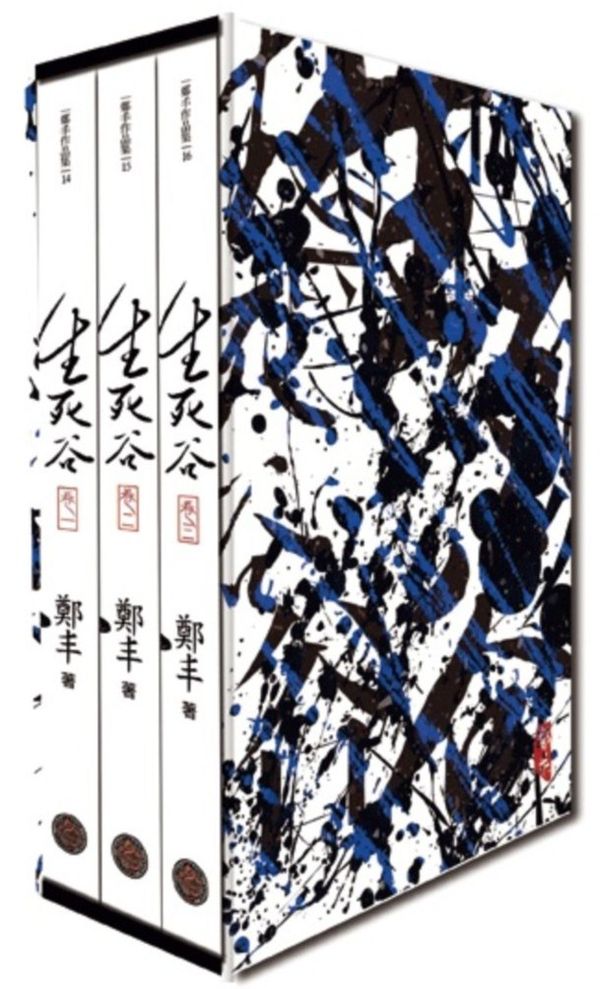 鄭丰作品集 14
生死谷
卷一
鄭丰 著
鄭丰作品集 15
生死谷
卷二
鄭丰 著
鄭丰作品集 16
生死谷
卷三
鄭丰 著